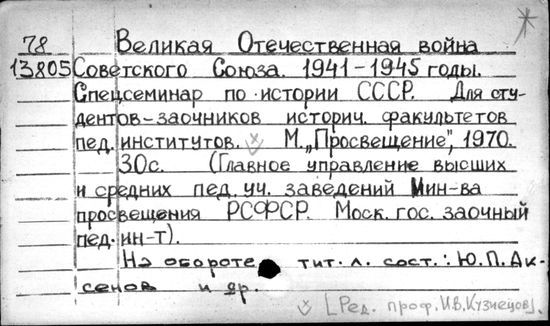 78 Великая Отечественная война
13805 Советского Союза 1941-1945 годы.
Спецсеминар по истории СССР. Для сту-
дентов-заочников историч. факультетов
пед. институтов. М. „Просвещение", 1970.
30с. (Главное управление высших
и средних пед. уч. заведений Мин-ва
просвещения РСФСР. Моск. гос. заочный
пед. ин-т).
На обороте тит. л. сост.: Ю.П. Ак-
сенов и др.
[Ред. проф. И.В. Кузнецов].